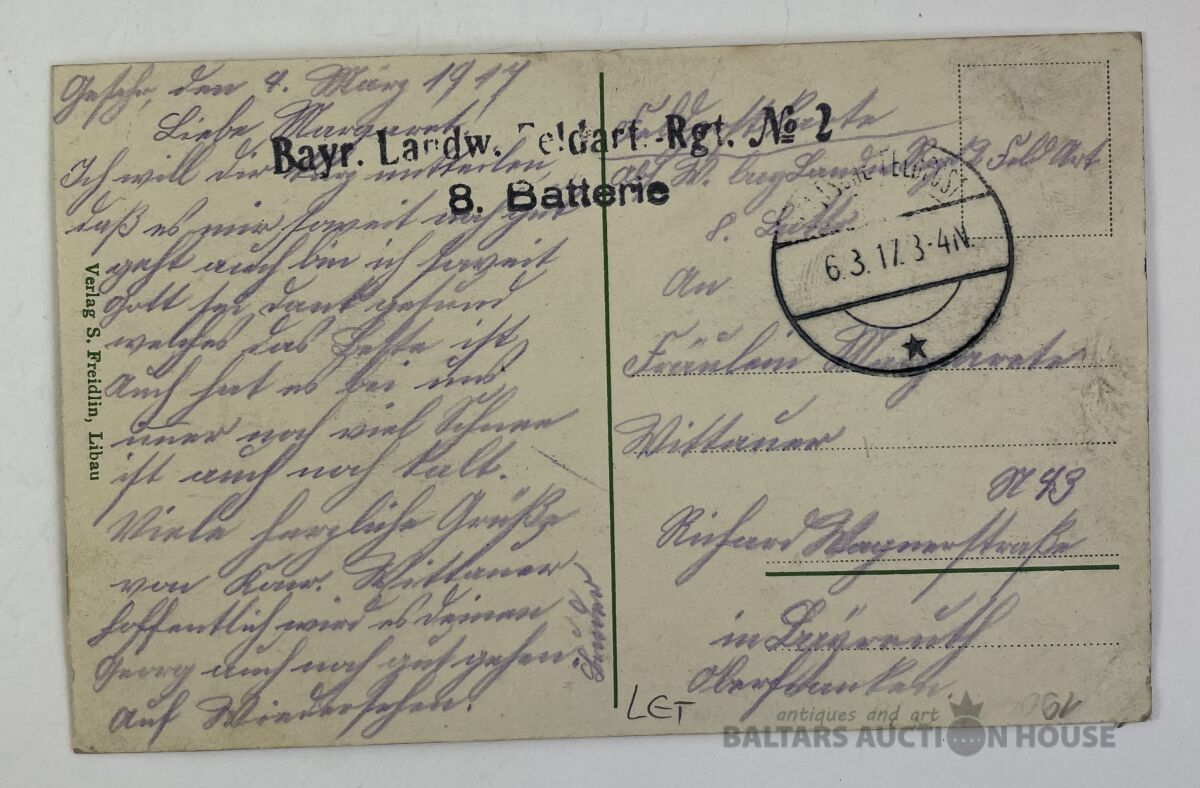 den 4. März 1917
Liebe Margaret!
Ich will dir kurz mitteilen,
daß es mir soweit noch gut
geht auch bin ich soweit
Gott sei dank gesund
welches das Beste ist,
Auch hat es bei uns
immer noch viel Schnee
ist auch noch kalt.
Viele herzliche Grüße
von Kanr. Wittauer
hoffentlich wird es deinem
Georg auch noch gut gehen.
Auf Wiedersehen!
Bayr. Landw. Feldart. Rgt. № 2
8. Batterie
Verlag S. Freidlin, Libau
Feldpostkarte
Feld Art
8. Batt.
FELDPOST
6.3.17. 3-4N.
An
Fräulein Margarete
Wittauer
N 43
Richard Wagnerstraße
in Bayreuth
Oberfranken.
LET
antiques and art
BALTARS AUCTION HOUSE